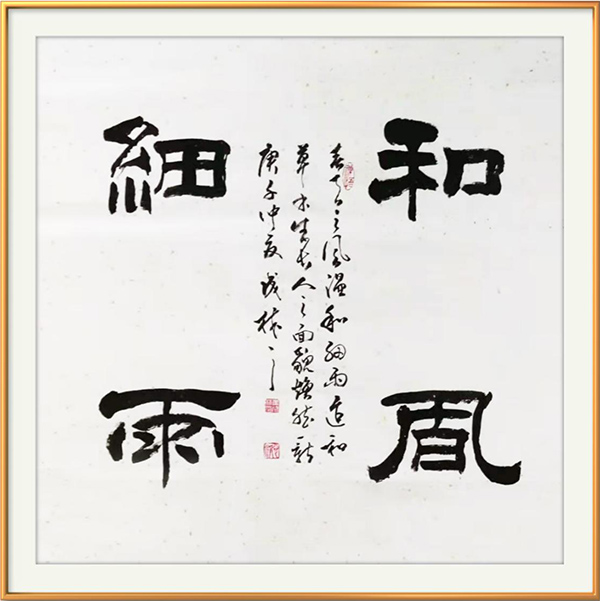 和風
春天之風温和細雨適和
草木生長人之面貌煥然新
庚子仲夏
細雨